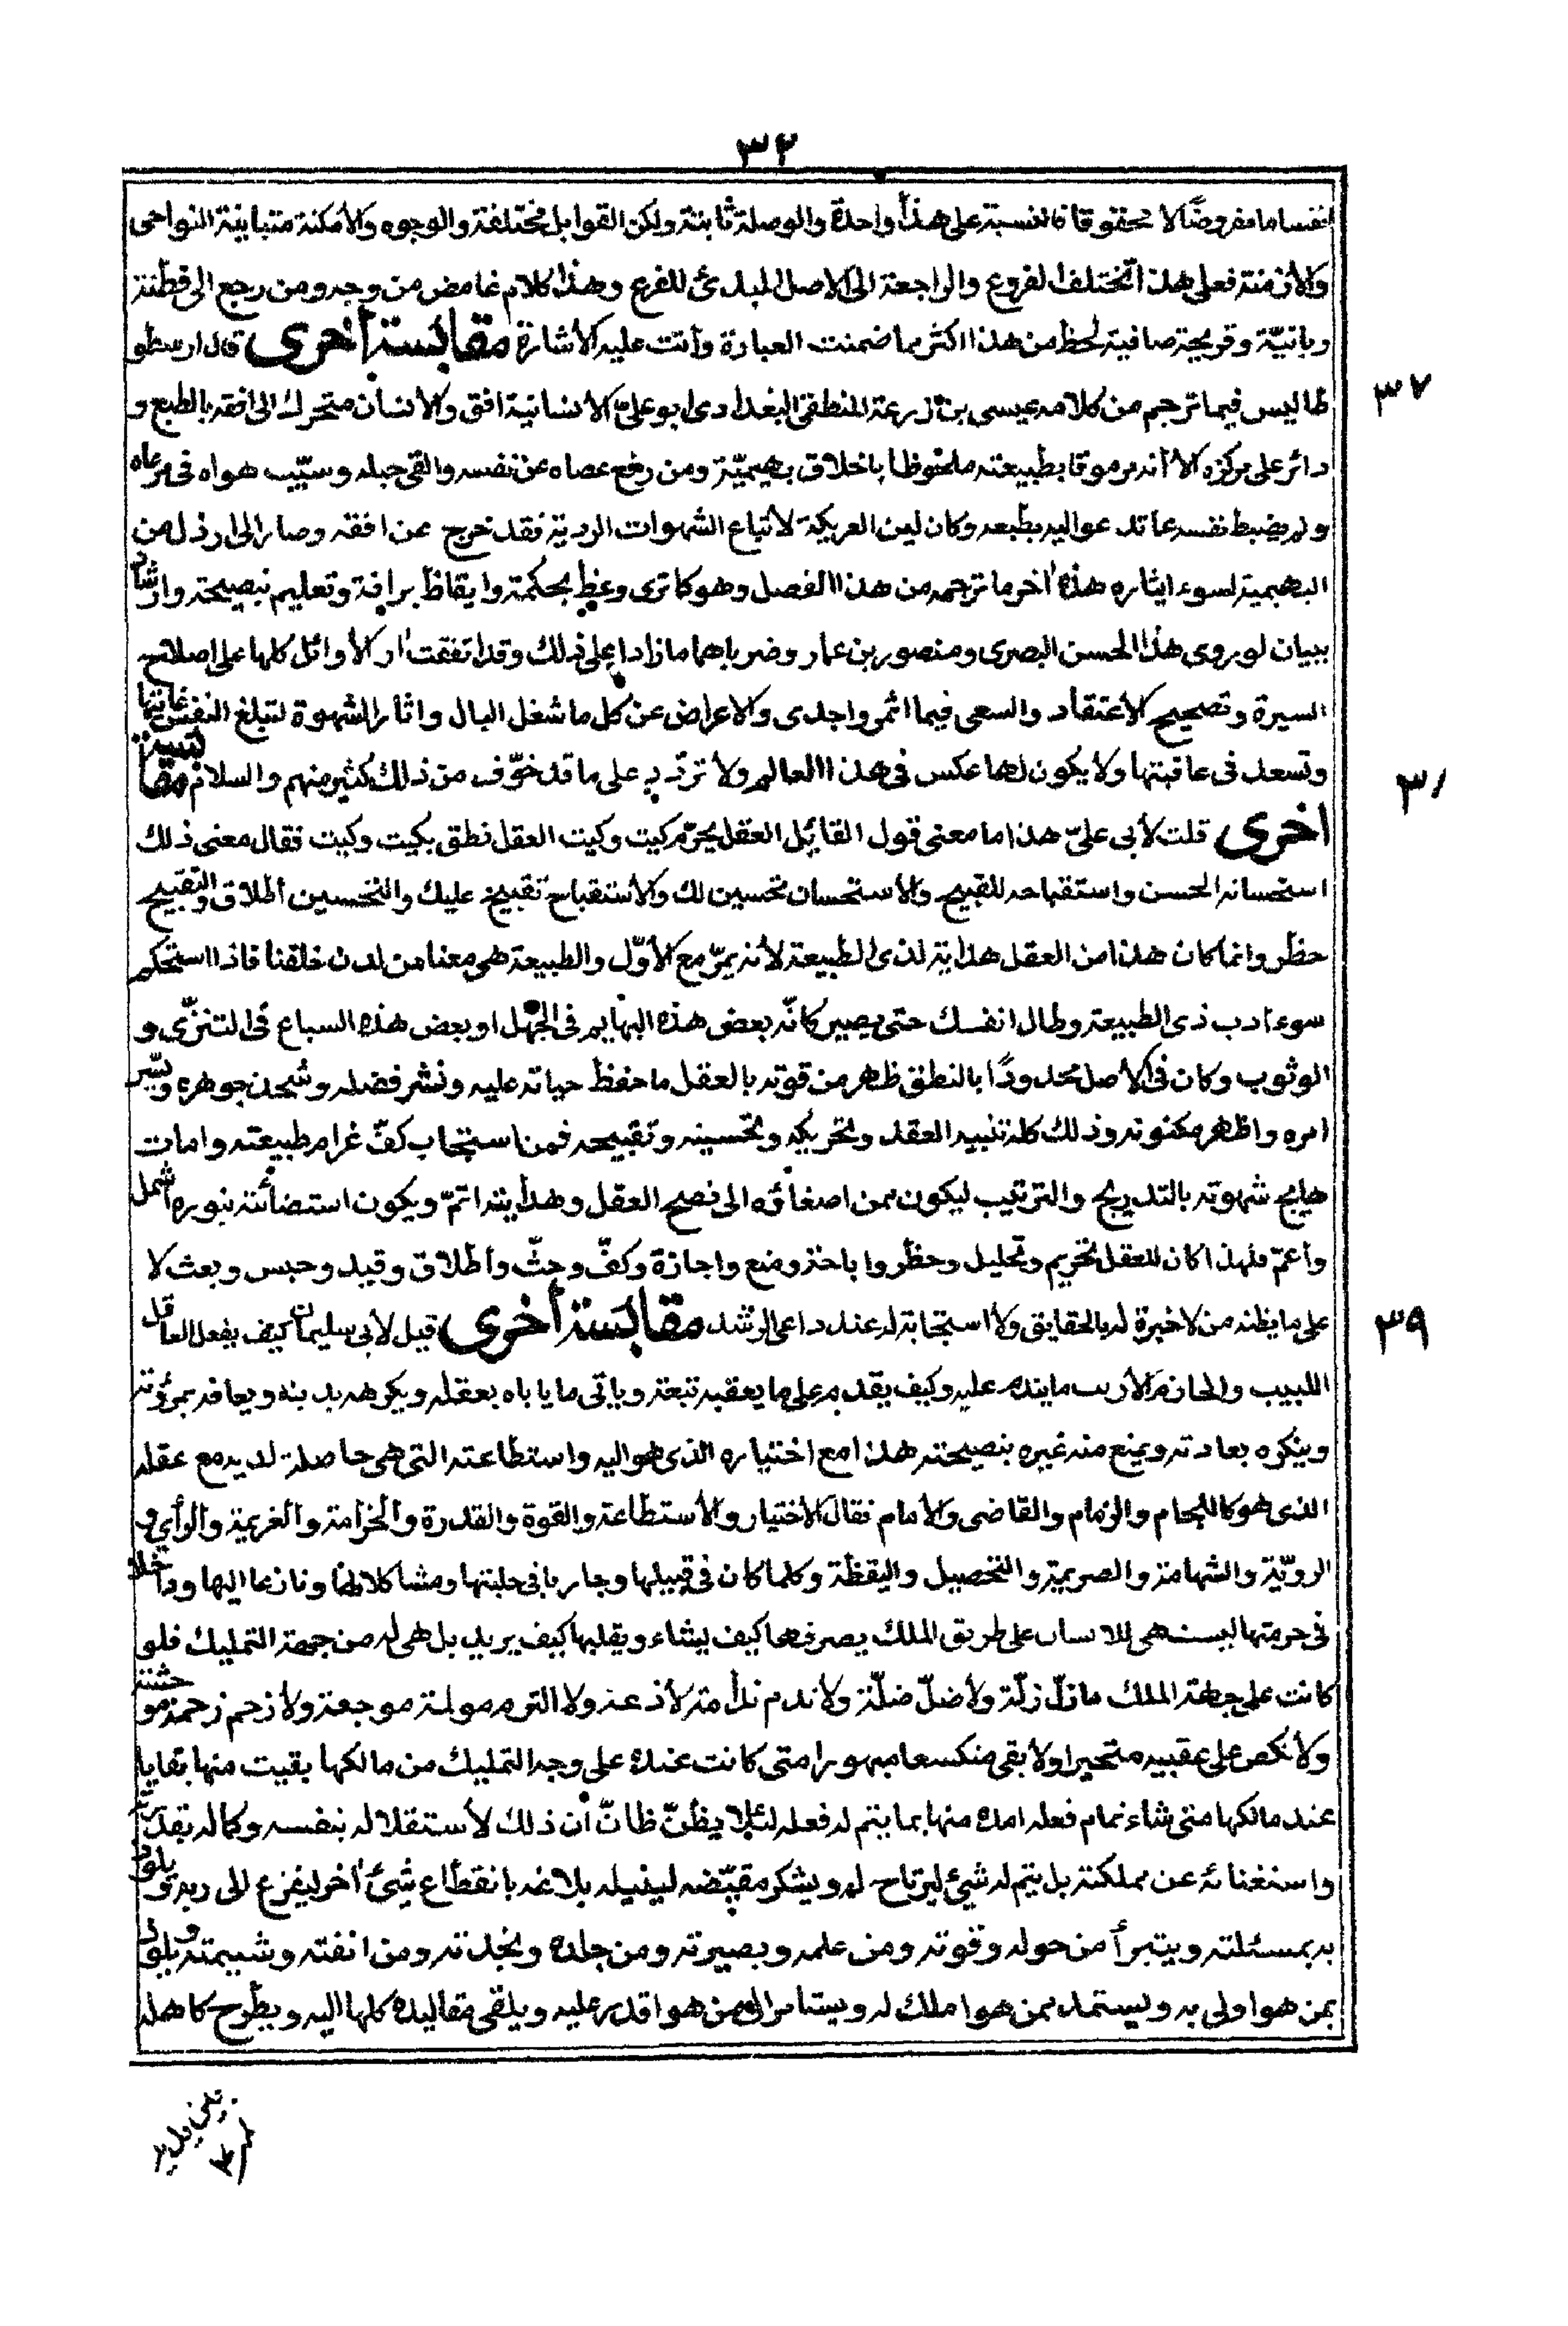 ٣٢
نفسا ما مفروضًا لا محقوقا فالنسبة على هذا واحدة والوصلة ثابتة ولكن القوابل مختلفة والوجوه والأمكنة متباينة النواحى
والأزمنة فعلى هذا تختلف الفروع والراجعة الى الاصل المبدئ للفرع وهذا كلام غامض من وجه ومن رجع الى فطنة
ربانيّة وقريحة صافية لحظ من هذا اكثر مما ضمنت العبارة وأتت عليه الأشارة مقابسة أخرى قال ارسطو
طاليس فيما ترجم من كلامه عيسى بن زرعة المنطقى البغدادى ابو علىّ الأنسانية افق والأنسان متحرك الى افقه بالطبع و
دائر على مركزه الا أنه مرموقا بطبيعته ملحوظا باخلاق بهيميّة ومن رفع عصاه عن نفسه والقى حبله وسيّب هواه فى مرعاه
ولم يضبط نفسه عما تدعو اليه بطبعه وكان لين العريكة لأتباع الشهوات الردية فقد خرج عن افقه وصار الى ارذل من
البهيمية لسوء ايثاره هذا أخر ما ترجمه من هذا الفصل وهو كما ترى وعظ بحكمة وايقاظ برافة وتعليم بنصيحة وارشاد
ببيان لو روى هذا للحسن البصرى ومنصور بن عمار وضرباهما ما زادا على ذلك وقد اتفقت أر الأوائل كلها على اصلاح
السيرة وتصحيح الأعتقاد والسعى فيما اثمر واجدى والاعراض عن كل ما شغل البال واثار الشهوة لتبلغ النفس غايتها
وتسعد فى عاقبتها ولا يكون لها عكس فى هذا العالم ولا تردّد على ما قد خوّف من ذلك كثير منهم والسلام مقابسة
اخرى قلت لأبى علىّ هذا ما معنى قول القائل العقل يحرّم كيت وكيت العقل نطق بكيت وكيت فقال معنى ذلك
استحسانه الحسن واستقباحه للقبيح والأستحسان تحسين لك والأستقباح تقبيح عليك والتحسين أطلاق والتقبيح
حظر وانما كان هذا من العقل هداية لذى الطبيعة لأنه يمرّ مع الأوّل والطبيعة هى معنا من لدن خلقنا فاذا استحكم
سوء ادب ذى الطبيعة وطال انفسك حتى يصير كانّه بعض هذه البهايم فى الجهل او بعض هذه السباع فى التنزّى و
الوثوب وكان فى الأصل محدودًا بالنطق ظهر من قوته بالعقل ما حفظ حياته عليه ونشر فضله وشحن جوهره ويسّر
امره واظهر مكنونه وذلك كله تنبيه العقل وتحريكه وتحسينه وتقبيحه فمن استجاب كفّ غرام طبيعته وامات
هايج شهوته بالتدريج والترتيب ليكون ممن اصغاؤه الى نصح العقل وهدايته اتمّ ويكون استضائته بنوره اشمل
وأعمّ فلهذا كان للعقل تحريم وتحليل وحظر واباحة ومنع واجازة وكفّ وحثّ وأطلاق وقيد وحبس وبعث لا
على ما يظنه من لا خبرة له بالحقايق ولا استجابة له عند داعى الرشد مقابسة أخرى قيل لأبى سليمان كيف يفعل العاقل
اللبيب والحازم الأريب ما يندم عليه وكيف يقدم على ما يعقبه تبعة ويأتى ما ياباه بعقله ويكرهه بدينه ويعافه بمروته
وينكره بعادته ويمنع منه غيره بنصيحته هذا مع اختياره الذى هو اليه واستطاعته التى هى حاصلة لديه مع عقله
الذى هو كاللجام والزمام والقاضى والأمام فقال الأختيار والأستطاعة والقوة والقدرة والحزامة والعزيمة والرأي و
الرويّة والشهامة والصريمة والتحصيل واليقظة وكلما كان فى قبيلها وجاريا فى حلبتها ومشاكلا لها ونازعا اليها وداخلا
فى حرمتها ليست هى للانسان على طريق الملك يصرفها كيف يشاء ويقلبها كيف يريد بل هى له من جهة التمليك فلو
كانت على جهة الملك ما زلّ زلّة ولا ضلّ ضلّة ولا ندم ندامة لاذعة ولا التوم مولمة موجعة ولا زحم زحمة موحشة
ولا نكص على عقبيه متحيرا ولا بقى منكسعا مبهورا متى كانت عنده على وجه التمليك من مالكها بقيت منها بقايا
عند مالكها متى شاء تمام فعله امده منها بما يتم له فعله لئلا يظنّ ظانّ أن ذلك لأستقلاله بنفسه وكماله بقدرته
واستغنائه عن مملكته بل يتم له شيئ ليرتاح له ويشكر مقيّضه لينيله بلاغه بانقطاع شيئ أخر ليفزع الى ربه ويلوذ
به بمسئلته ويتبرأ من حوله وقوته ومن علمه وبصيرته ومن جلده ونجدته ومن انفته وشيمته ويلوذ
بمن هو اولى به ويستمد ممن هو املك له ويستامر الى من هو اقدر عليه ويلقى مقاليده كلها اليه ويطرح كاهله
٣٧
٣٩